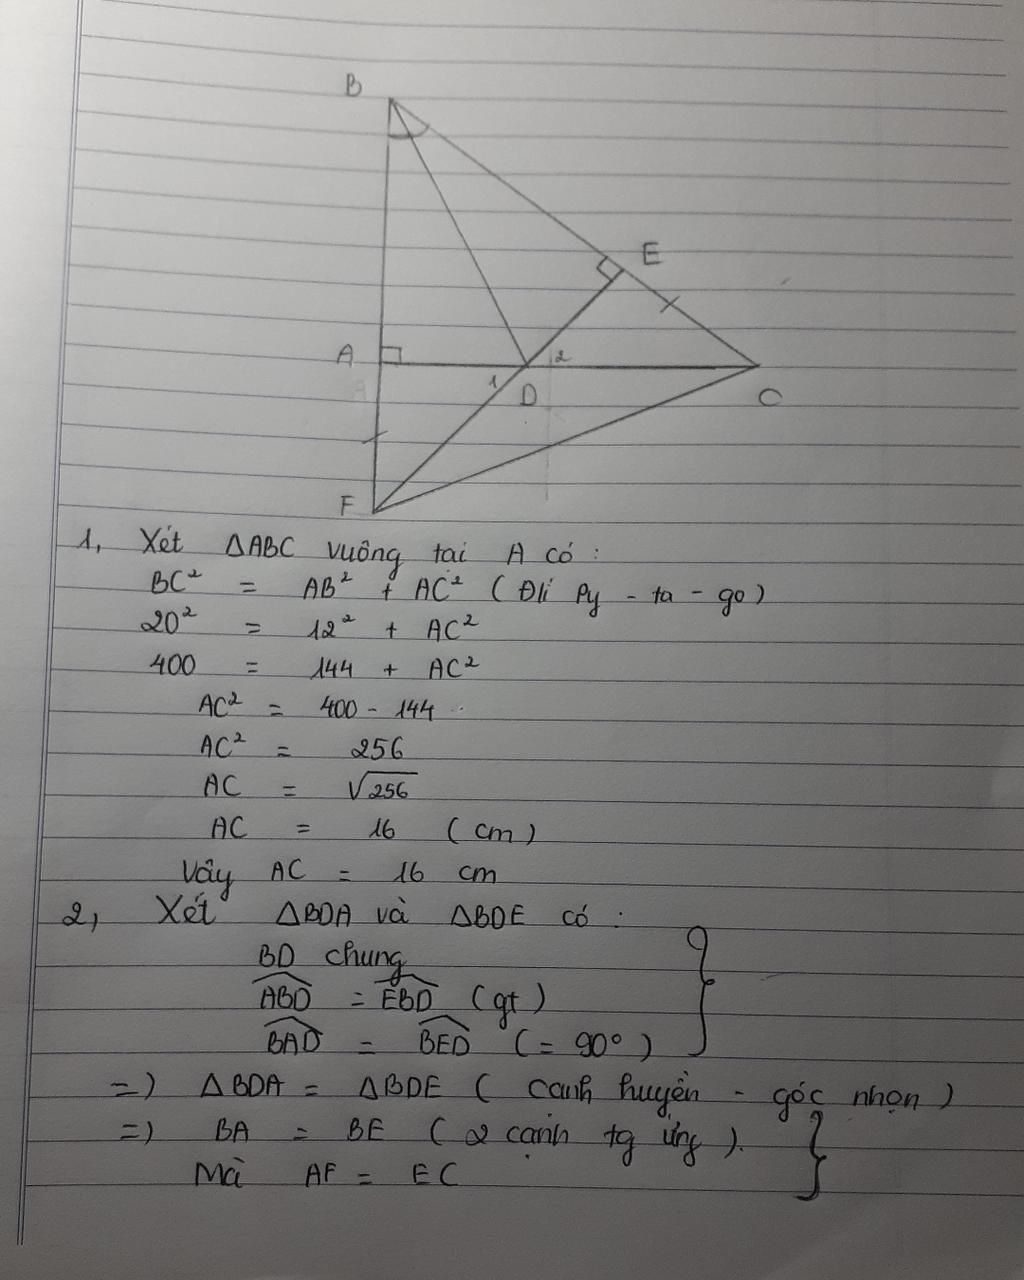 B
E
A
1
2
D
C
F
1, Xét ΔABC vuông tai A có :
BC² = AB² + AC² ( Đlí Py - ta - go )
20² = 12² + AC²
400 = 144 + AC²
AC² = 400 - 144
AC² = 256
AC = √256
AC = 16 ( cm )
Vây AC = 16 cm
2, Xét ΔBDA và ΔBDE có :
BD chung
ABD = EBD ( gt )
BAD = BED ( = 90° )
=) ΔBDA = ΔBDE ( canh huyền - góc nhọn )
=) BA = BE ( 2 cạnh tg ứng ).
Mà AF = EC